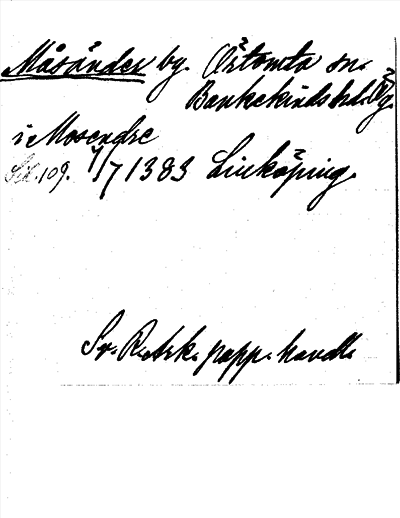 Måsänder by. Östomta sn.
Bankekinds hd. Ög.
i Mosendre
Sd. 109. 4/7 1383 Linköping.
Sv. R. Ark. papp. handl.